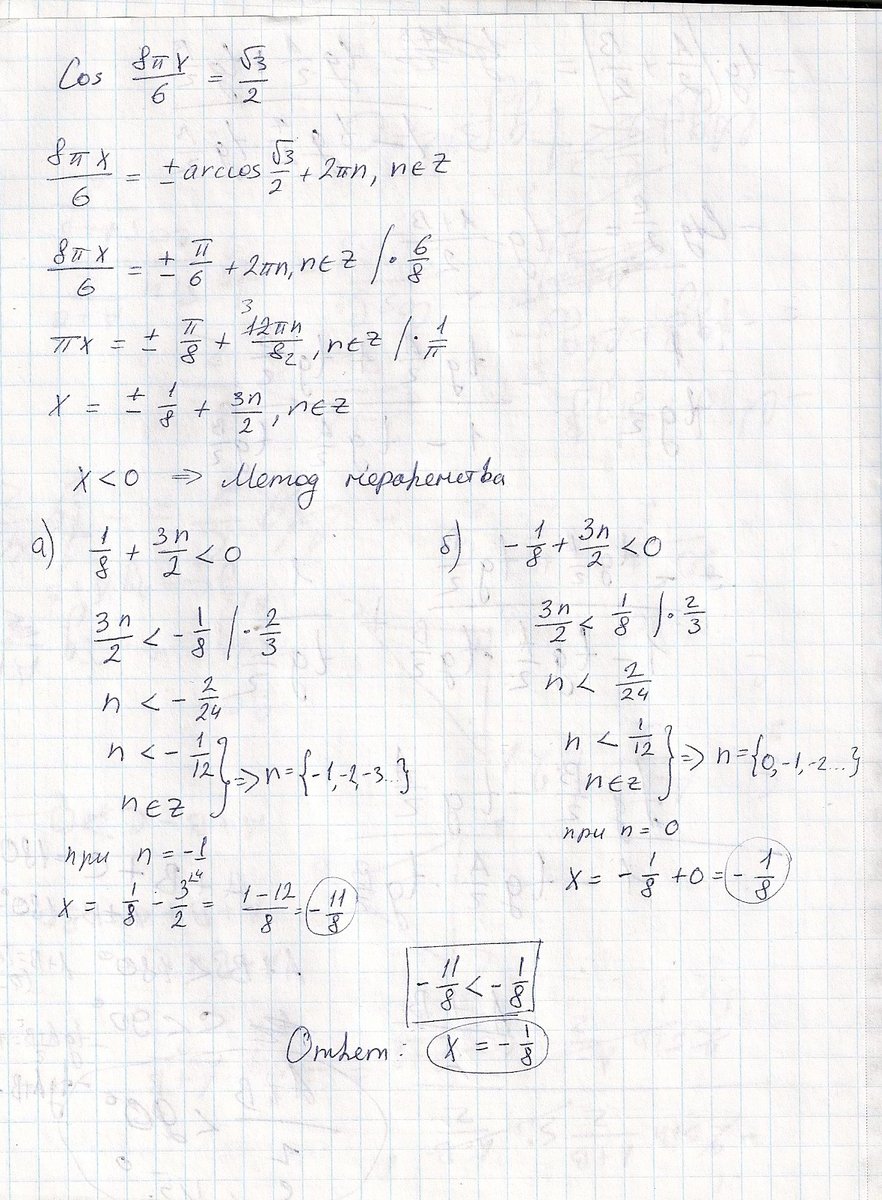 Cos 8πx/6 = √3/2
8πx/6 = ± arccos √3/2 + 2πn, n∈Z
8πx/6 = ± π/6 + 2πn, n∈Z /· 6/8
πx = ± π/8 + 12πn/8, n∈Z /· 1/π
3 2
x = ± 1/8 + 3n/2, n∈Z
x < 0 ⇒ Метод неравенства
а) 1/8 + 3n/2 < 0
3n/2 < - 1/8 /· 2/3
n < - 2/24
n < - 1/12
n∈Z } ⇒ n = {-1, -2, -3...}
при n = -1
x = 1/8 - 3/2 = 1-12/8 = - 11/8
б) - 1/8 + 3n/2 < 0
3n/2 < 1/8 /· 2/3
n < 2/24
n < 1/12
n∈Z } ⇒ n = {0, -1, -2...}
при n = 0
x = - 1/8 + 0 = - 1/8
- 11/8 < - 1/8
Ответ: x = - 1/8